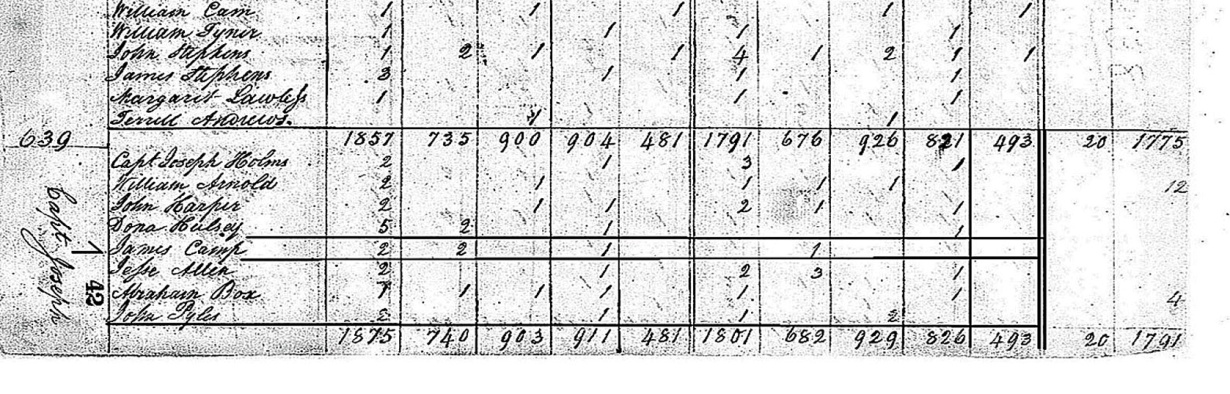 William Cam 1 1 1 1 1
William Tyner 1 1 1 1
John Stephens 1 2 1 1 4 1 2 1 1
James Stephens 3 1 1 1
Margaret Lawless 1 1 1
Terrell Andrews. 1 1
639 1857 735 900 904 481 1791 676 926 821 493 20 1775
Capt Joseph Holms 2 1 3 1
William Arnold 2 1 1 1 1 12
John Harper 2 1 1 2 1 1
Dona Hulsey 5 2 1 1
James Camp 2 2 1 1
Jesse Allin 2 1 2 3 1
Abraham Box 1 1 1 1 1 4
John Pyles 2 1 1 2
1875 740 903 911 481 1801 682 929 826 493 20 1791
Capt. Joseph
42